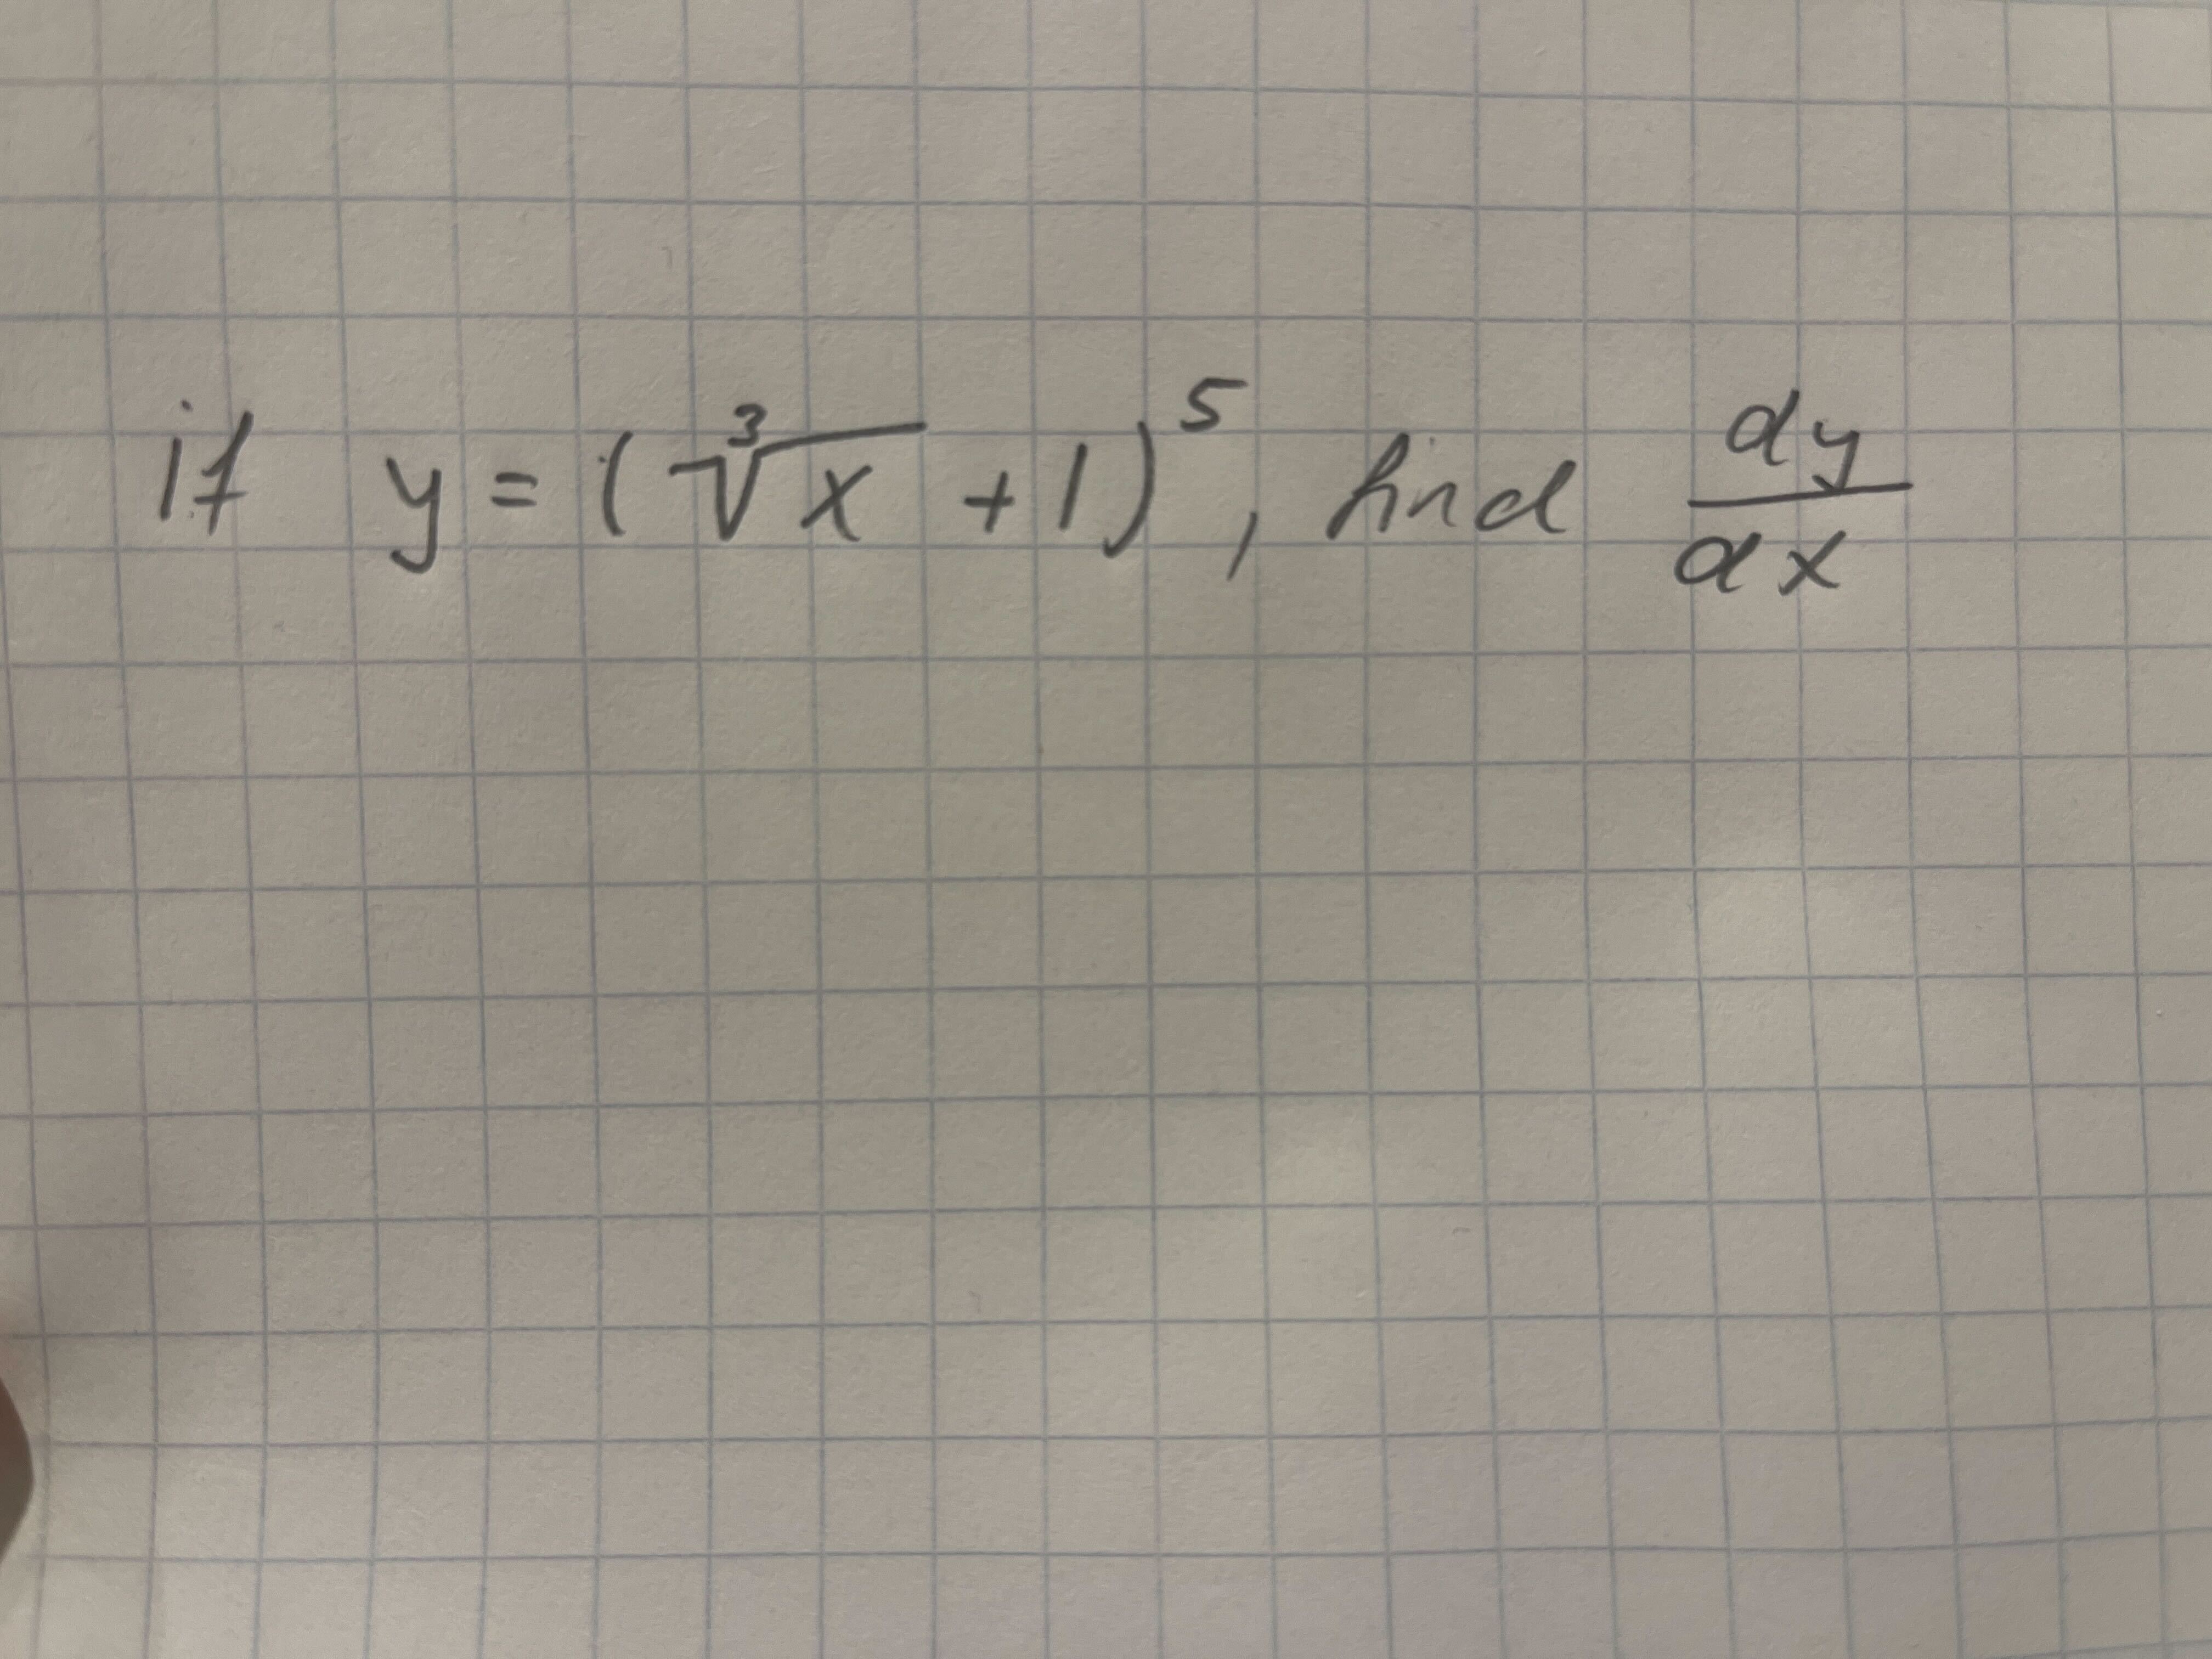 if y = (∛x + 1)⁵, find dy/dx